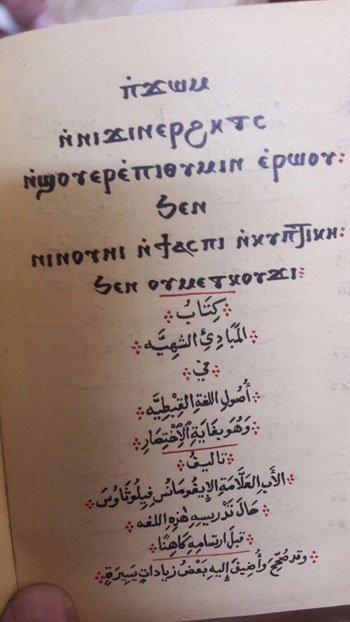 ⲡ̀ϫⲱⲙ
ⲛ̀ⲛⲓϫⲓⲛⲉⲣϩⲏⲧⲥ
ⲛ̀ϣⲟⲩⲉⲣⲉ̀ⲡⲓⲑⲩⲙⲓⲛ ⲉ̀ⲣⲱⲟⲩ:
ϧⲉⲛ
ⲛⲓⲛⲟⲩⲛⲓ ⲛ̀ϯⲁⲥⲡⲓ ⲛ̀ⲕⲩⲡⲧⲓⲕⲏ:
ϧⲉⲛ ⲟⲩⲙⲉⲧⲕⲟⲩϫⲓ:
كِتَابُ
المَبَادِئِ الشَهِيَّه
في
أُصُولِ اللغَةِ القِبْطِيَّه
وَهُوَ بِغَايَةِ الإِخْتِصَارِ
تاليفُ
الأَبِ العَلَّامَةِ الإِيغُومَانُسِ فِيلُوثَاوُسَ
حَالَ تَدْرِيسِهِ هٰذِهِ اللغه
قَبْلَ ارتِسَامِهِ كَاهِنًا
وقد صُحِّحَ وَأُضِيفَ إِليهِ بَعْضُ زِيادَاتٍ يَسِيرَةٍ